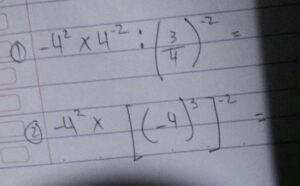 ① -4² × 4⁻² : (3/4)⁻² =
② -4² × [(-4)³]⁻² =